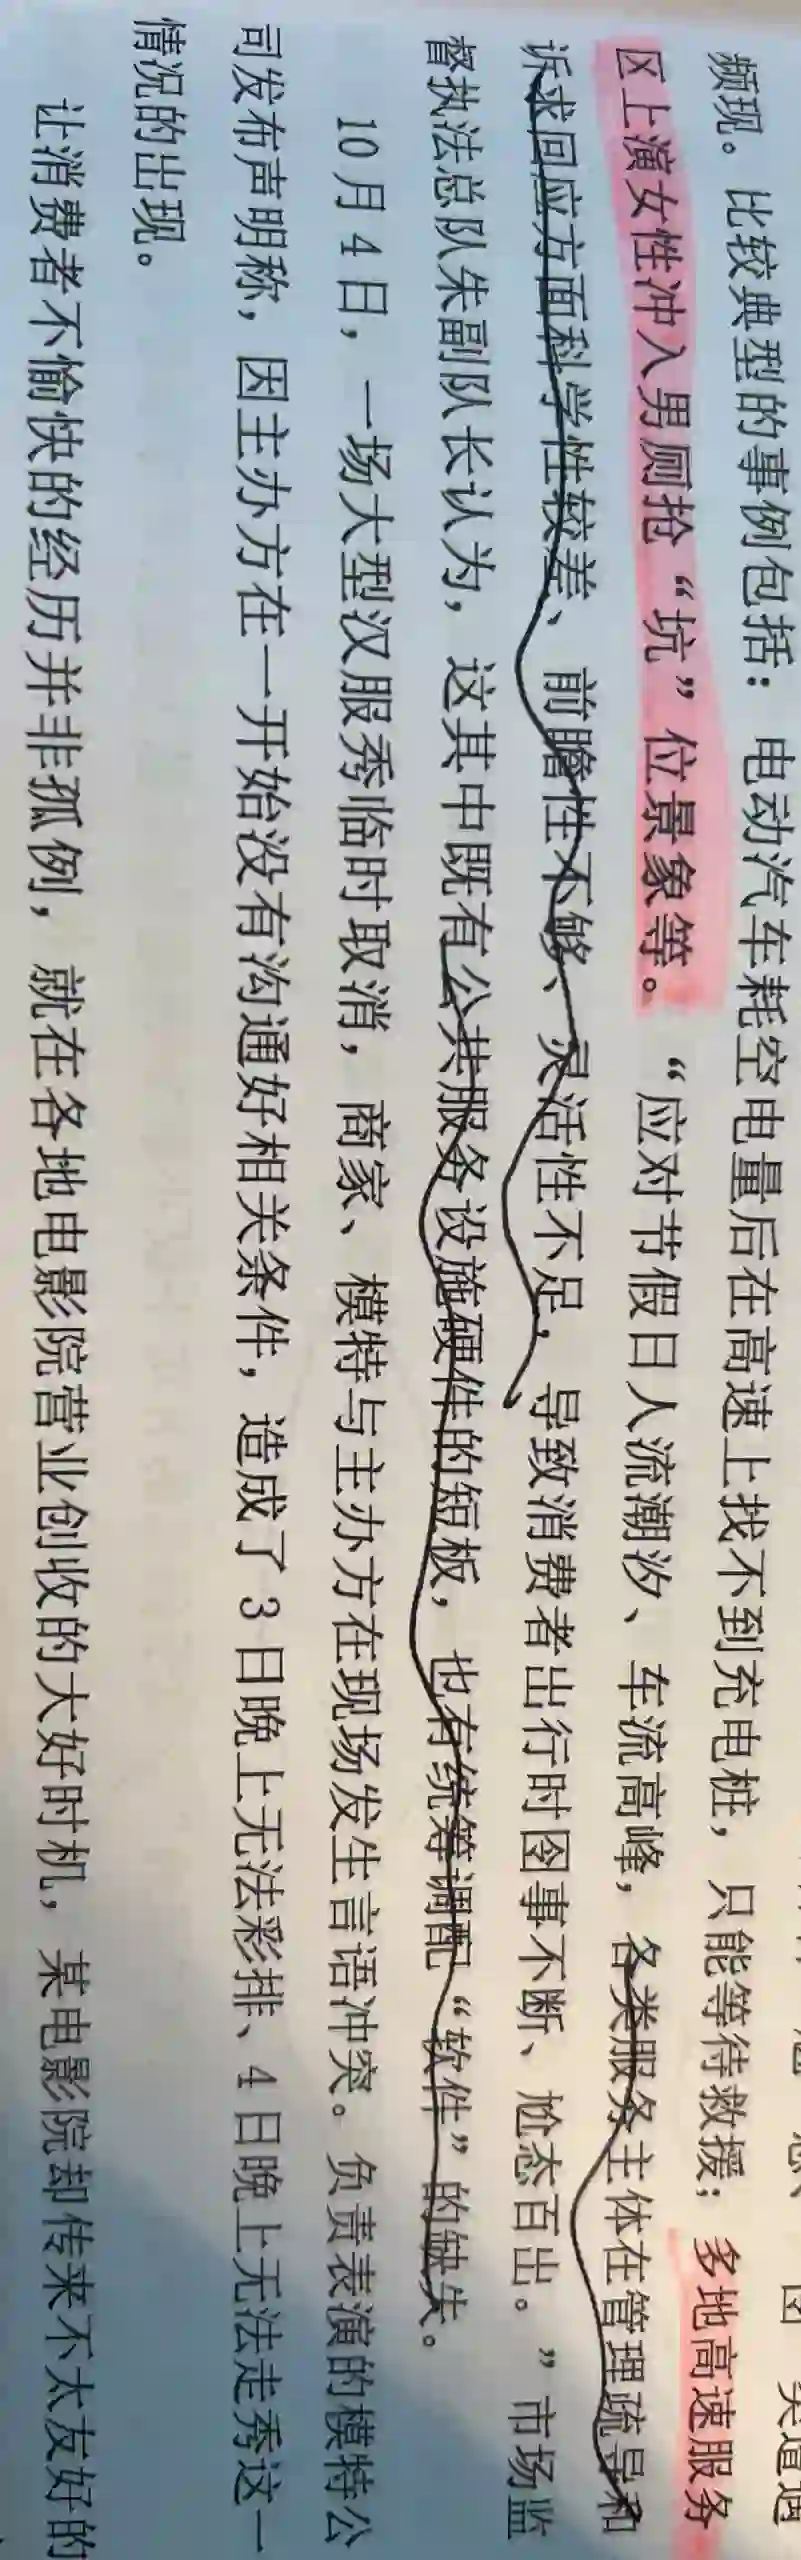 频现。比较典型的事例包括：电动汽车耗空电量后在高速上找不到充电桩，只能等待救援；多地高速服务
区上演女性冲入男厕抢“坑”位景象等。“应对节假日人流潮汐、车流高峰，各类服务主体在管理疏导和
诉求回应方面科学性较差、前瞻性不够、灵活性不足，导致消费者出行时囧事不断、尬态百出。”市场监
督执法总队朱副队长认为，这其中既有公共服务设施硬件的短板，也有统筹调配“软件”的缺失。
10月4日，一场大型汉服秀临时取消，商家、模特与主办方在现场发生言语冲突。负责表演的模特公
司发布声明称，因主办方在一开始没有沟通好相关条件，造成了3日晚上无法彩排、4日晚上无法走秀这一
情况的出现。
让消费者不愉快的经历并非孤例，就在各地电影院营业创收的大好时机，某电影院却传来不太友好的